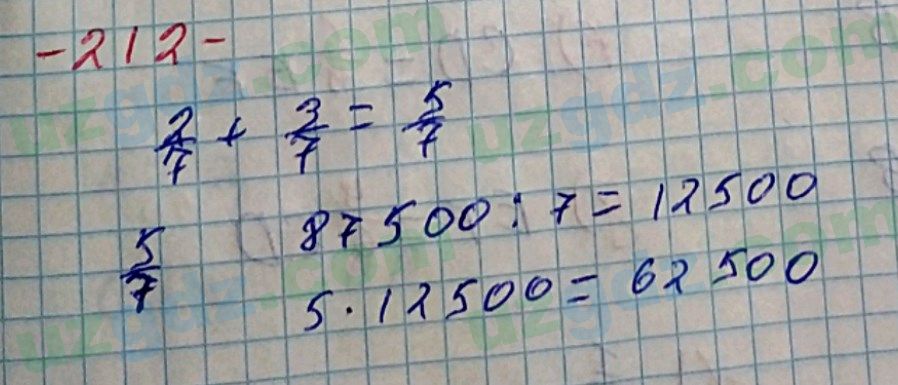 -212-
2/7 + 3/7 = 5/7
5/7 87500 : 7 = 12500
5 · 12500 = 62500
uzgdz.com
uzgdz.com
uzgdz.com
uzgdz.com